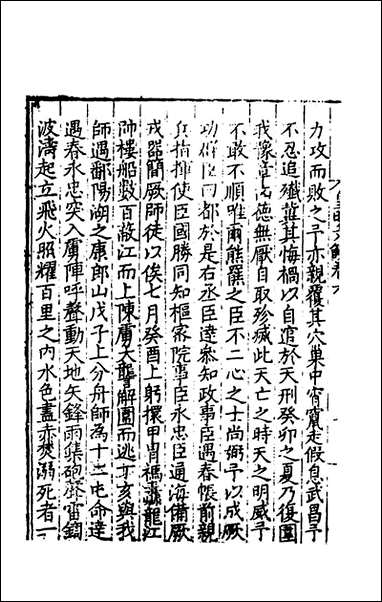 力攻而敗之予亦親覆其穴巢中宵竄走假息武昌予
不忍追殲冀其悔禍以自逭於天刑癸卯之夏乃復圍
我豫章凶德無厭自取殄滅此天亡之時天之明威予
不敢不順唯爾熊羆之臣不二心之士尚弼予以成厥
功群臣曰都於是右丞臣達叅知政事臣遇春帳前親
兵指揮使臣國勝同知樞密院事臣永忠臣通海備厥
戎器簡厥師徒以俟七月癸酉上躬擐甲冑禡纛龍江
帥樓船數百蔽江而上陳虜大讋解圍而逃丁亥與我
師遇鄱陽湖之康郎山戊子上分舟師為十二屯命達
遇春永忠突入虜陣呼聲動天地矢鋒雨集砲聲雷鍧
波濤起立飛火照耀百里之內水色盡赤焚溺死者一